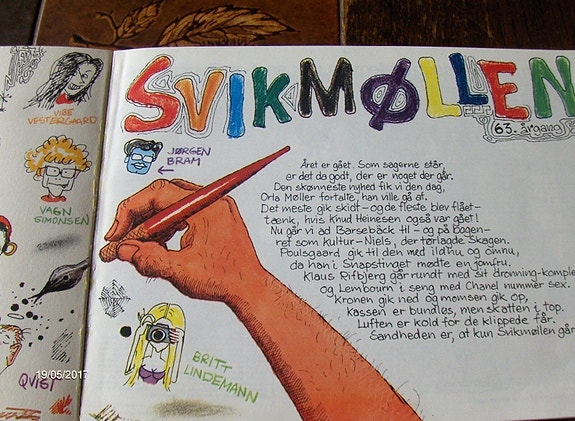 VIBE
VESTERGAARD
VAGN
SIMONSEN
QVIST
19/05/2017
SVIKMØLLEN
63. årgang
JØRGEN
BRAM
Året er gået. Som sagerne står,
er det da godt, der er noget der går.
Den skønneste nyhed fik vi den dag,
Orla Møller fortalte, han ville gå af.
Det meste gik skidt – og de fleste blev flået –
tænk, hvis Knud Heinesen også var gået!
Nu går vi ad Barsebäck til – og på bogen –
ret som kultur – Niels, der tørlagde Skagen.
Poulsgaard gik til den med ildhu og omnu,
da han i Snapstinget mødte en jomfru.
Klaus Rifbjerg går rundt med sit dronning-komple
og Lembourn i seng med Chanel nummer sex.
Kronen gik ned og momsen gik op,
kassen er bundløs, men skatten i top.
Luften er kold for de klippede får.
Sandheden er, at kun Svikmøllen går
BRITT
LINDEMANN